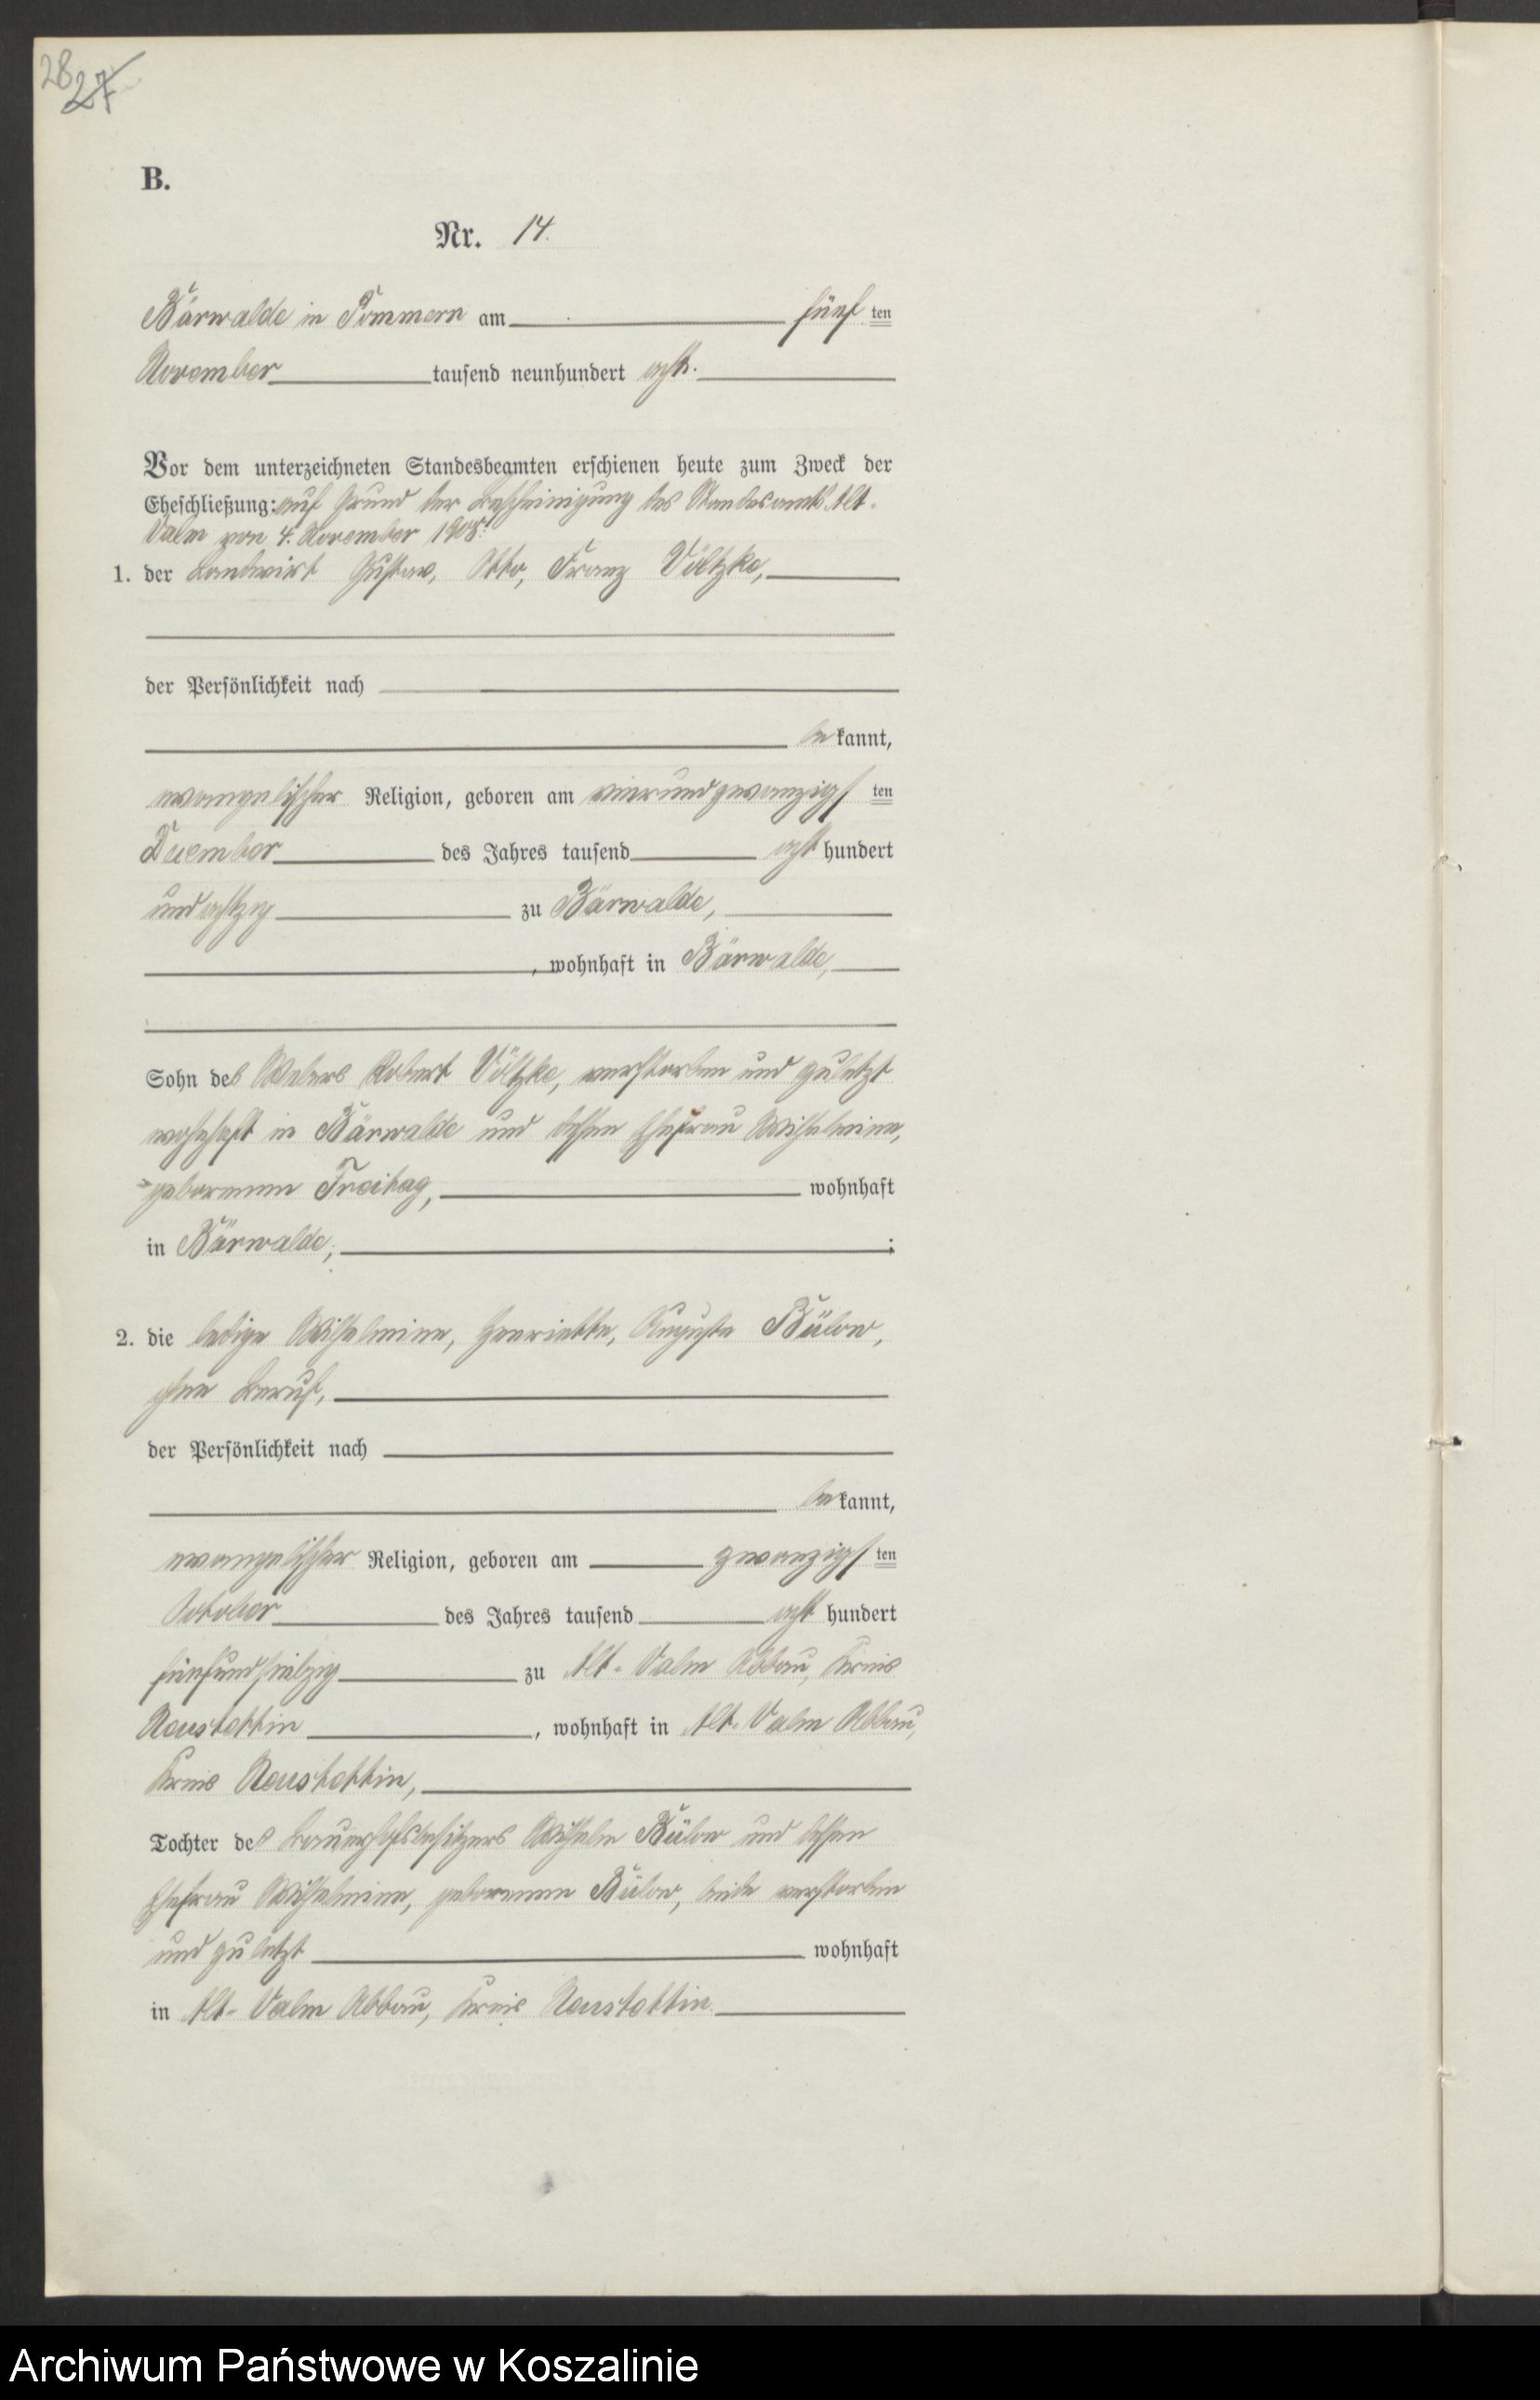 28
27
B.
Nr. 14.
Bärwalde in Pommern am fünf ten
November tausend neunhundert acht.
Vor dem unterzeichneten Standesbeamten erschienen heute zum Zweck der
Eheschließung: auf Grund der Bescheinigung des Standesamts Alt-
Valm von 4. November 1908:
1. der Landwirt Gustav, Otto, Franz Völtzke,
der Persönlichkeit nach
be kannt,
evangelischer Religion, geboren am vierundzwanzigs ten
Dezember des Jahres tausend acht hundert
und achtzig zu Bärwalde,
, wohnhaft in Bärwalde,
Sohn des Webers Robert Völtzke, verstorben und zuletzt
wohnhaft in Bärwalde und dessen Ehefrau Wilhelmine,
geborenen Freitag, wohnhaft
in Bärwalde, ;
2. die ledige Wilhelmine, Henriette, Auguste Bülow,
ohne Beruf,
der Persönlichkeit nach
be kannt,
evangelischer Religion, geboren am zwanzigs ten
October des Jahres tausend acht hundert
fünfundsiebzig zu Alt-Valm Abbau, Kreis
Neustettin , wohnhaft in Alt-Valm Abbau,
Kreis Neustettin,
Tochter des Bauerhofsbesitzers Wilhelm Bülow und dessen
Ehefrau Wilhelmine, geborenen Bülow, beide verstorben
und zuletzt wohnhaft
in Alt-Valm Abbau, Kreis Neustettin.
Archiwum Państwowe w Koszalinie